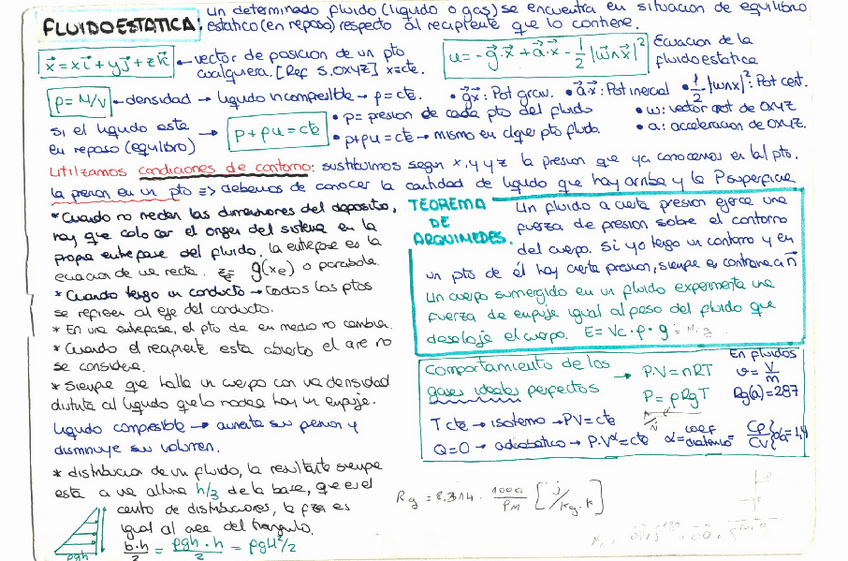 FLUIDOESTATICA: un determinado fluido (liquido o gas) se encuentra en situacion de equilibrio
estatico (en reposo) respecto al recipiente que lo contiene.
x⃗ = xi⃗ + yj⃗ + zk⃗ ← vector de posicion de un pto
cualquiera. [Ref S.OXYZ] x≡cte.
u = -g⃗·x⃗ + a⃗·x - 1/2 |w⃗∧x⃗|² Ecuacion de la
fluidoestatica
ρ = M/V ← densidad → liquido incompresible → ρ = cte.
• g⃗x⃗: Pot grav. • a⃗·x⃗: Pot inercial • 1/2·|w∧x|²: Pot cent.
• w: vector rot de OXYZ
• a: aceleracion de OXYZ.
Si el liquido esta
en reposo (equilibrio) → p + ρu = cte
• p = presion de cada pto del fluido
• p+ρu = cte → mismo en clquier pto fluido.
Utilizamos condiciones de contorno: sustituimos segun x, y y z la presion que ya conocemos en tal pto.
La presion en un pto => debemos de conocer la cantidad de liquido que hay arriba y la P superficie
* Cuando no me den las dimensiones del deposito,
hay que colocar el origen del sistema en la
propia entrefase del fluido, la entrefase es la
ecuacion de una recta. z = g(xe) o parabola.
* Cuando tengo un conducto → todos los ptos
se refieren al eje del conducto.
* En una entrefase, el pto de en medio no cambia.
* Cuando el recipiente esta abierto el aire no
se considera.
* Siempre que halla un cuerpo con una densidad
distinta al liquido que lo rodea hay un empuje.
Liquido compresible → aumenta su presion y
disminuye su volumen.
* distribucion de un fluido, la resultante siempre
esta a una altura h/3 de la base, que es el
cento de distribuciones, la fza es
igual al area del triangulo.
ρgh
b·h/2 = ρgh·h/2 = ρgh²/2
TEOREMA
DE
ARQUIMEDES.
Un fluido a cierta presion ejerce una
fuerza de presion sobre el contorno
del cuerpo. Si yo tengo un contorno y en
un pto de él hay cierta presion, siempre es contraria a n⃗
Un cuerpo sumergido en un fluido experimenta una
fuerza de empuje igual al peso del fluido que
desaloje el cuerpo. E = Vc·ρ·g
Comportamiento de los
gases ideales perfectos
→ P·V = nRT
P = ρRgT
En fluidos
v = V/m
Rg(a) = 287
T cte → isotermo → PV = cte
Q = 0 → adiabatico → P·Vᵅ = cte α = coef Cp/Cv } α = 1,4
Rg = 8,314 · 1000/PM [J/Kg·K]